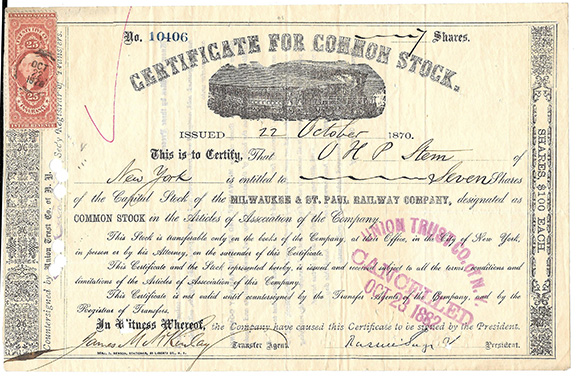 No. 10406 7 Shares.
CERTIFICATE FOR COMMON STOCK.
ISSUED 22 October 1870.
This is to Certify, That O H P Stem of
New York is entitled to Seven Shares
of the Capital Stock of the MILWAUKEE & ST. PAUL RAILWAY COMPANY, designated as
COMMON STOCK in the Articles of Association of the Company.
This Stock is transferable only on the books of the Company, at their Office, in the City of New York,
in person or by his Attorney, on the surrender of this Certificate.
This Certificate and the Stock represented hereby, is issued and received subject to all the terms, conditions and
limitations of the Articles of Association of this Company.
This Certificate is not valid until countersigned by the Transfer Agents of the Company, and by the
Registrar of Transfers.
In Witness Whereof, the Company have caused this Certificate to be signed by the President.
James M. McKinlay Transfer Agent. President
UNION TRUST CO. N.Y.
CANCELLED
OCT 23 1882
SHARES, $100 EACH
Countersigned by Union Trust Co. of N. Y.
Registrar of Transfers.
25 25
OCT